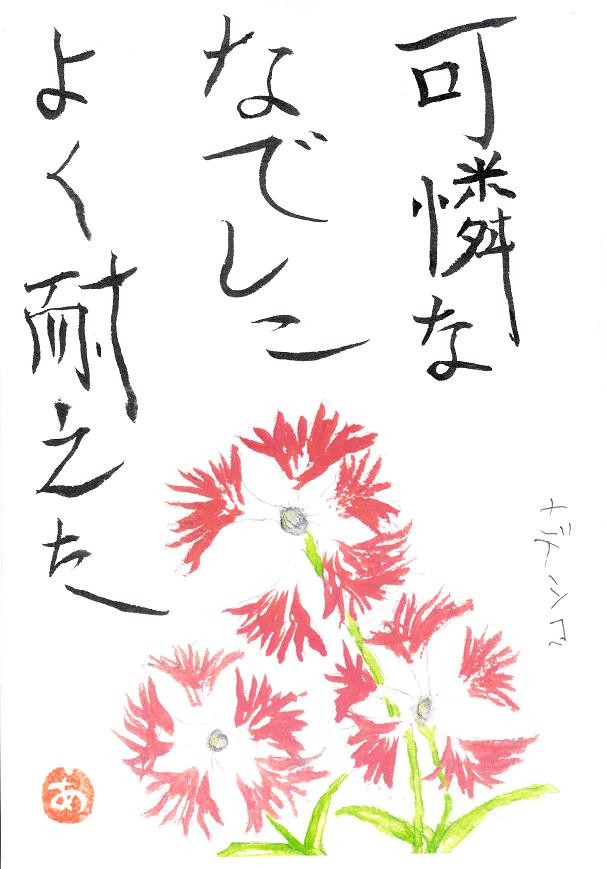 可憐な
なでしこ
よく耐えた
ナデシコ
あ